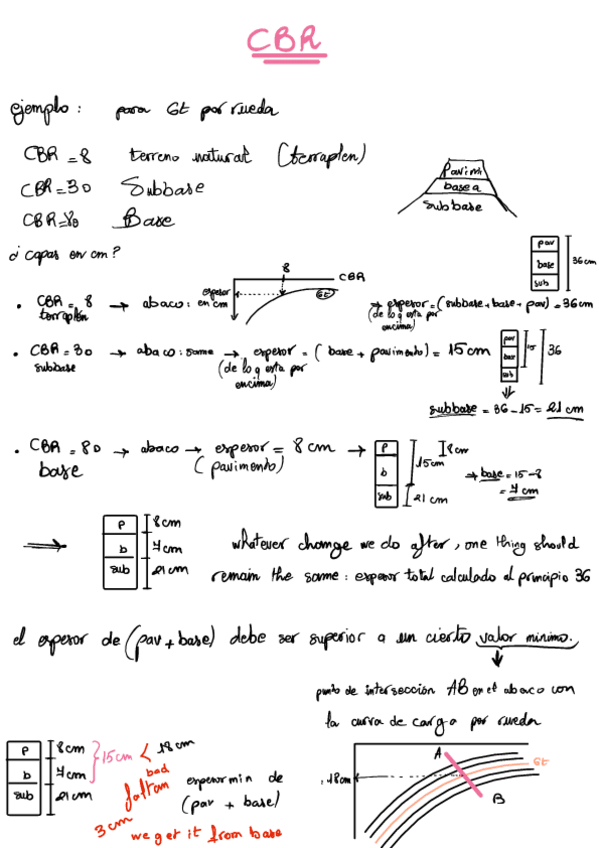 CBR
ejemplo : para 6t por rueda
CBR = 8 terreno natural (terraplen)
CBR = 30 Subbase
CBR = 80 Base
Pavim
base a
subbase
¿ capas en cm ?
pav
base
sub
36 cm
• CBR = 8 → abaco :
terraplén
espesor en cm
8
CBR
6t
⇒ espesor = (subbase + base + pav) = 36 cm
(de lo q esta por encima)
• CBR = 30 → abaco : same → espesor = ( base + pavimento) = 15 cm
subbase
(de lo q esta por encima)
pav
base
sub
15
36
subbase = 36 - 15 = 21 cm
• CBR = 80 → abaco → espesor = 8 cm →
base
(pavimento)
P
b
sub
8 cm
15 cm
21 cm
⇒ base = 15 - 8
= 7 cm
P
b
sub
8 cm
7 cm
21 cm
whatever change we do after, one thing should
remain the same : espesor total calculado al principio 36
el espesor de (pav + base) debe ser superior a un cierto valor minimo.
punto de intersección AB en el abaco con
la curva de carga por rueda
P
b
sub
8 cm
7 cm
21 cm
15 cm < 18 cm
bad
faltan
3 cm
espesor min de
(pav + base)
we get it from base
18 cm
A
B
6t